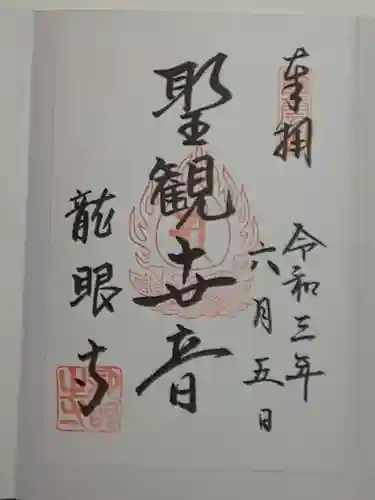 奉拝
令和三年
六月五日
聖観世音
龍眼寺